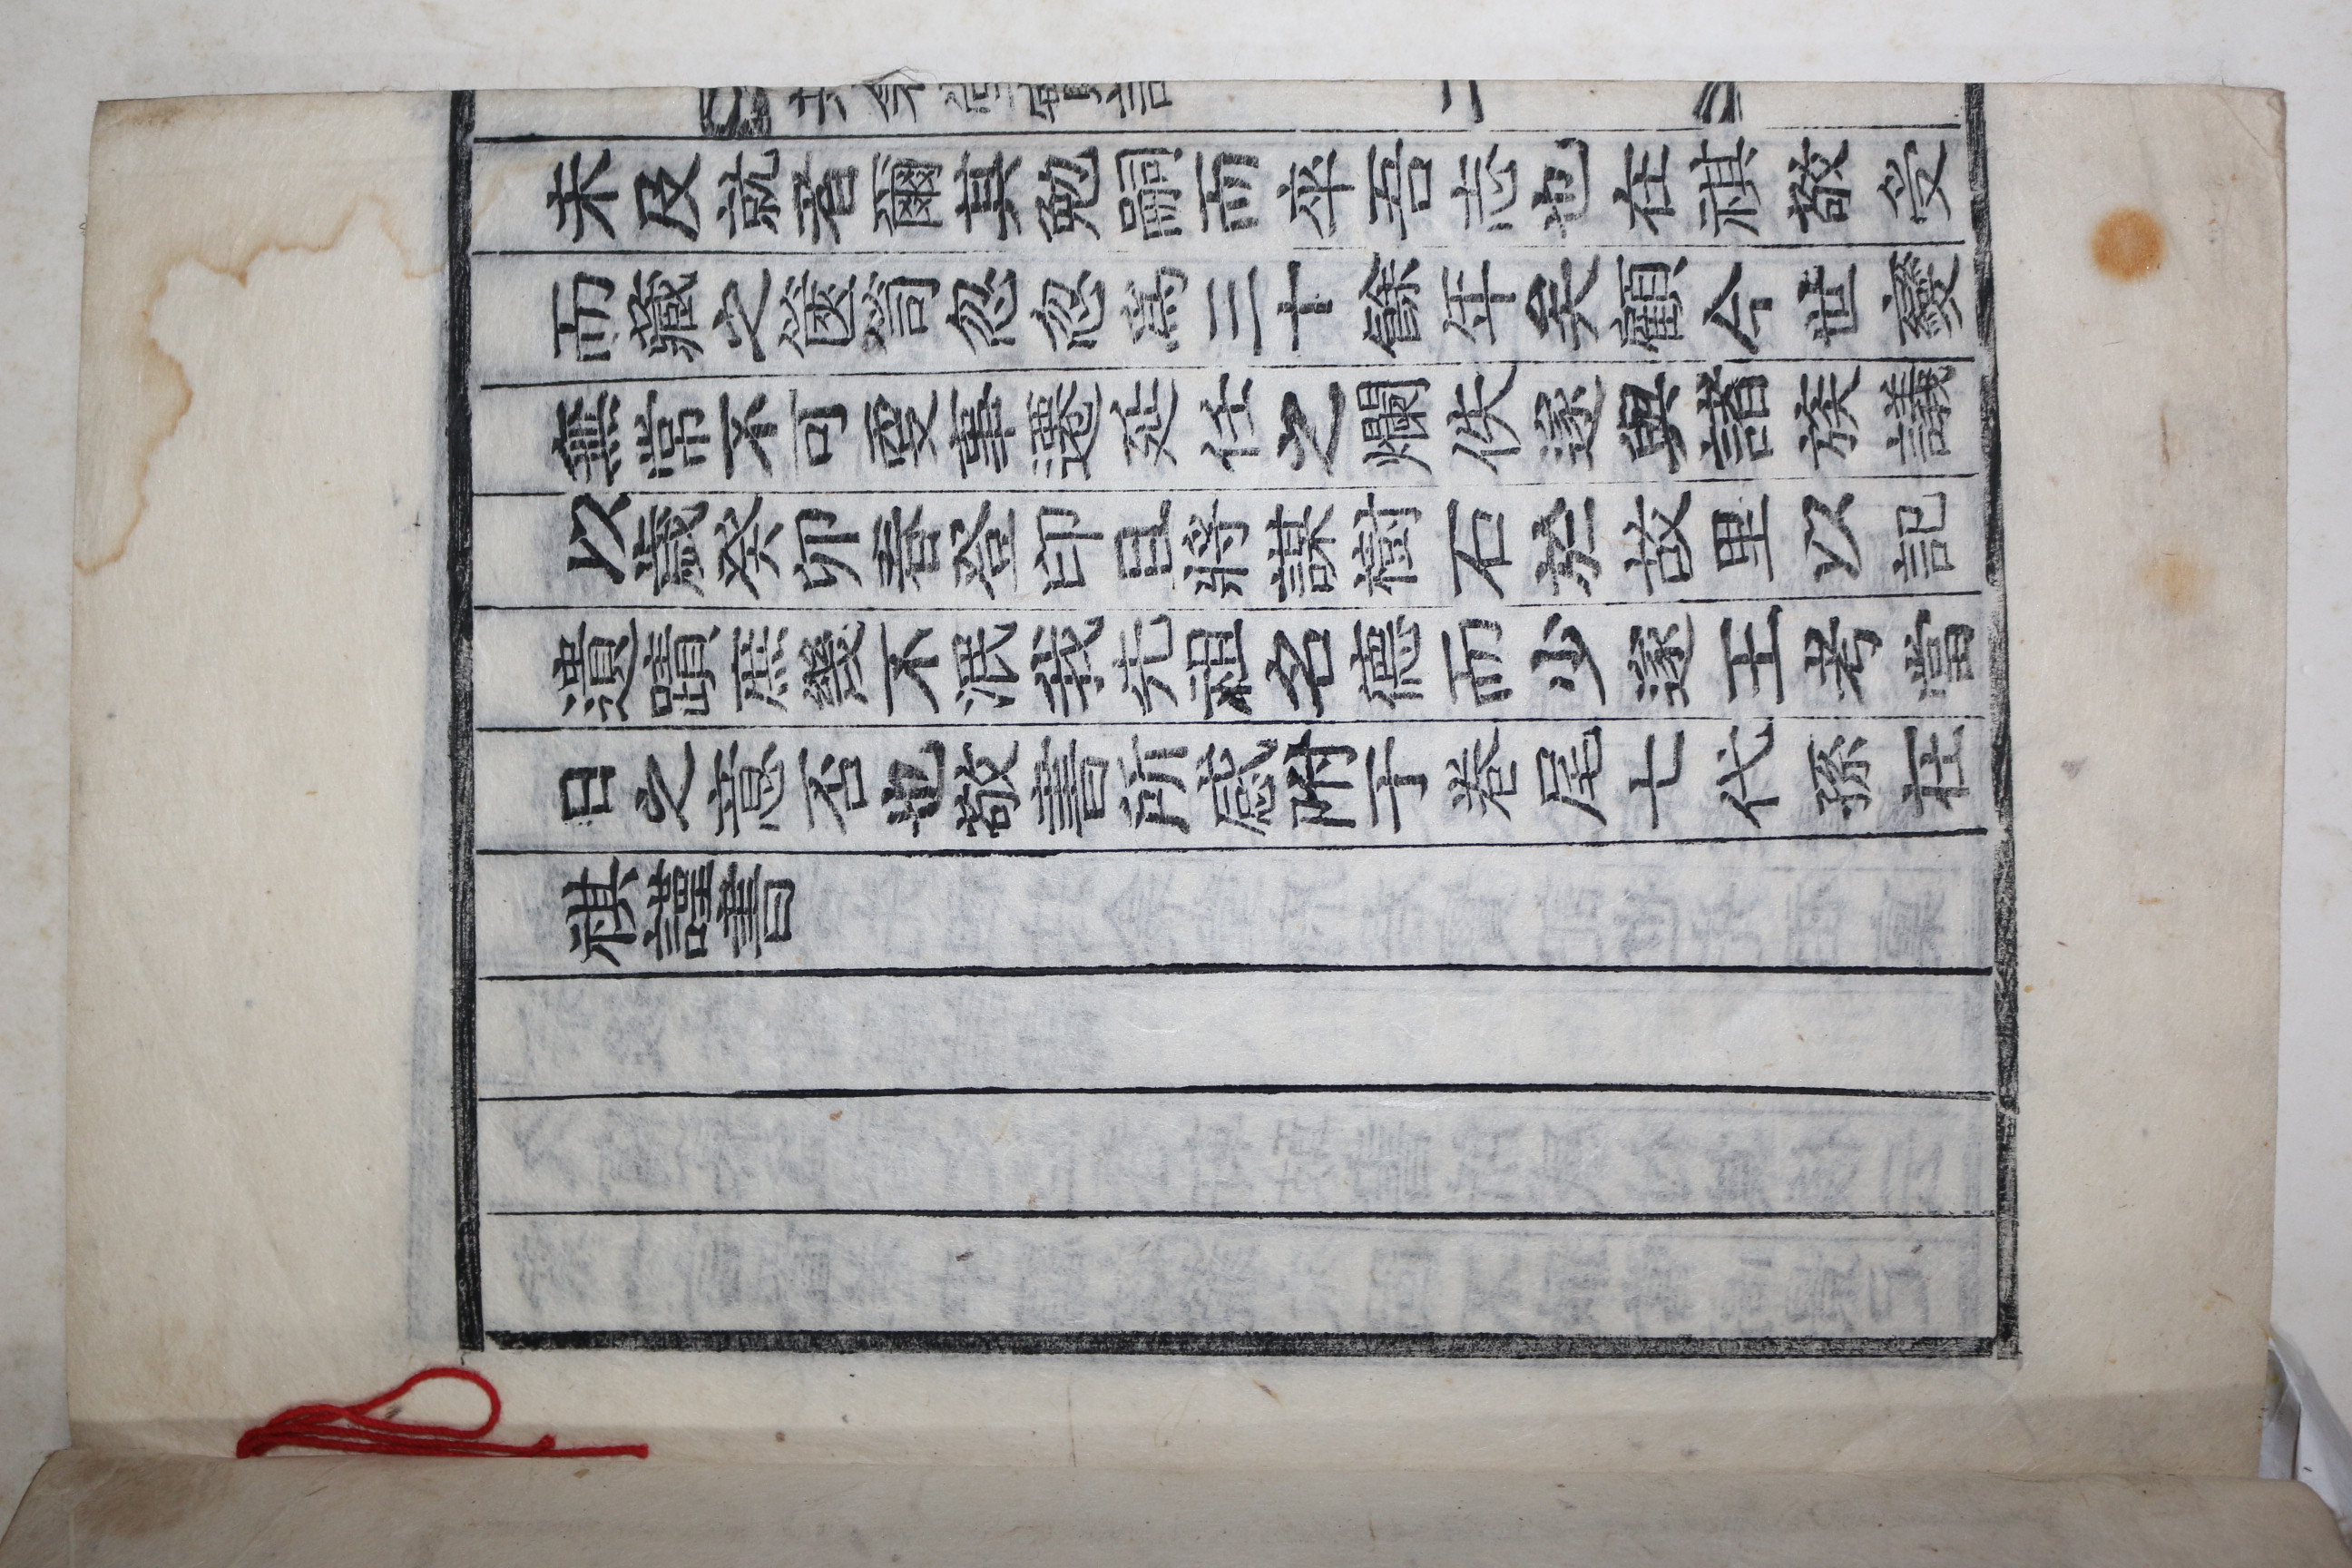 堂實記 二
未及就者爾其勉嗣而卒吾志也在祺敬受
而藏之篋笥忽忽爲三十餘年矣顧今世變
無常不可更事遷延任之爛佚遂與諸族議
以歲癸卯春登印且將謀樹石於故里以記
遺蹟庶幾不泯我先祖名德而少遂王考當
日之意否也敬書所感附于卷尾七代孫在
祺謹書